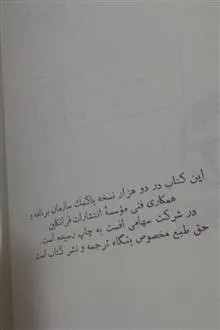 این کتاب در دو هزار نسخه باکمك سازمان برنامه و
همکاری فنی مؤسسهٔ انتشارات فرانکلین
در شرکت سهامی افست به چاپ رسیده است.
حق طبع مخصوص بنگاه ترجمه و نشر کتاب است